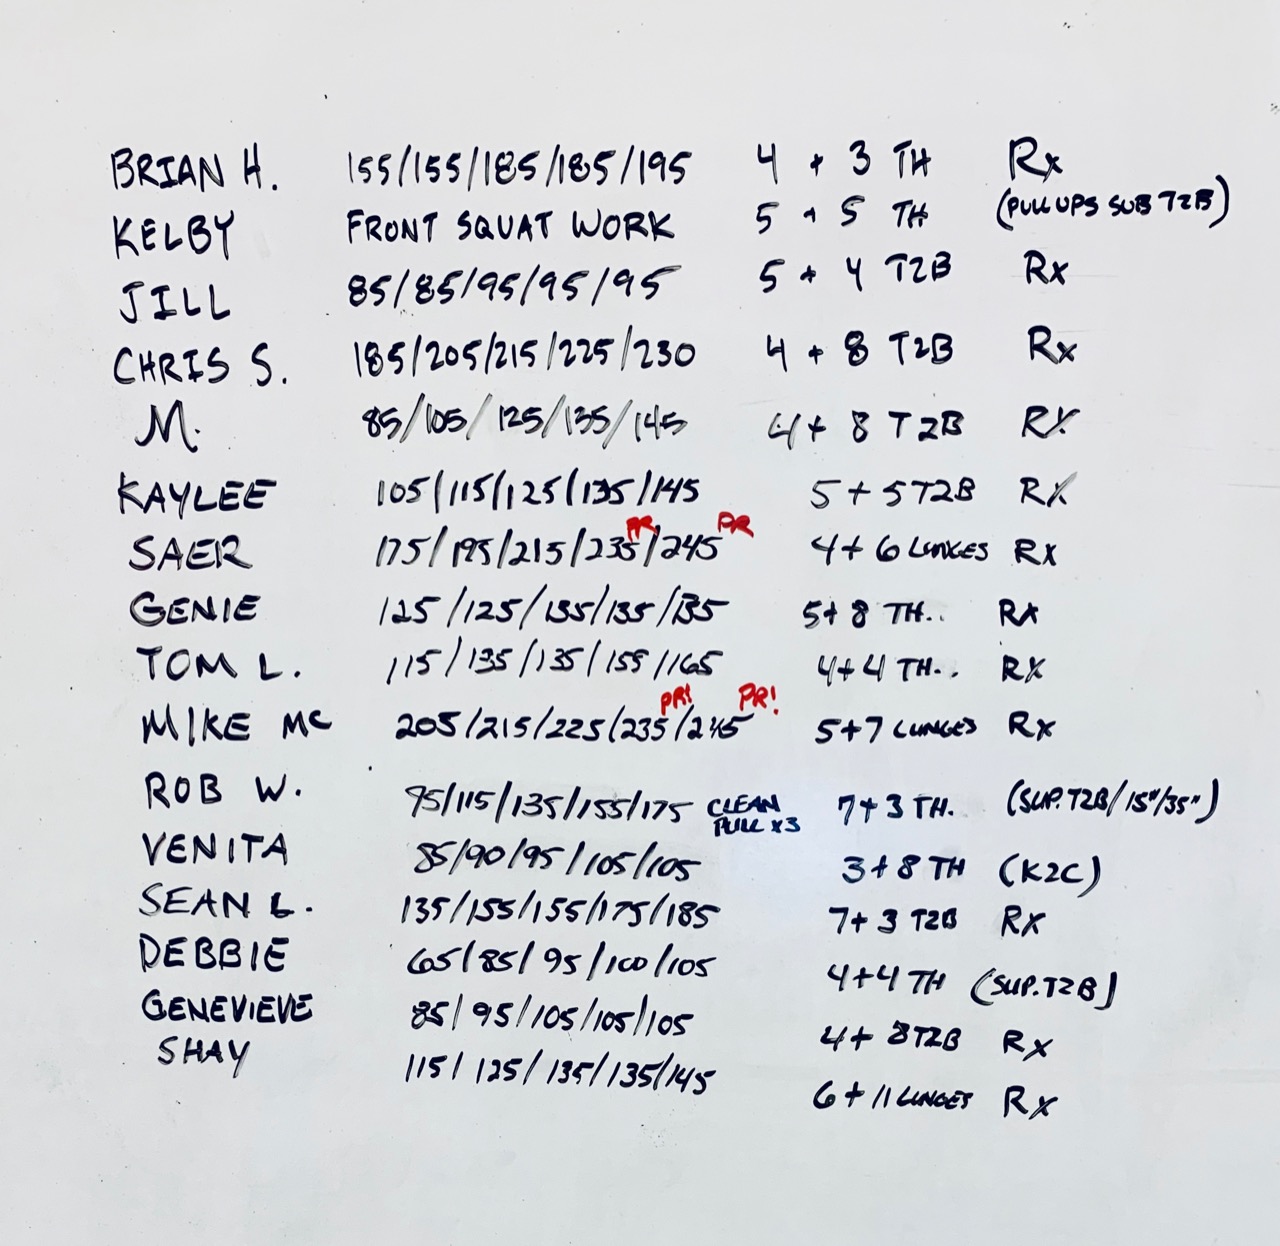 BRIAN H. 155/155/185/185/195 4 + 3 TH Rx
KELBY FRONT SQUAT WORK 5 + 5 TH (PULL UPS SUB T2B)
JILL 85/85/95/95/95 5 + 4 T2B Rx
CHRIS S. 185/205/215/225/230 4 + 8 T2B Rx
M. 85/105/125/135/145 4+ 8 T2B RX
KAYLEE 105/115/125/135/145 5 + 5 T2B RX
PR PR
SAER 175/195/215/235/245 4+ 6 LUNGES RX
GENIE 125/125/135/135/135 5+ 8 TH.. RX
TOM L. 115/135/135/155/165 4+4 TH.. RX
PR! PR!
MIKE MC 205/215/225/235/245 5+7 LUNGES RX
ROB W. 95/115/135/155/175 CLEAN PULL x3 7+3 TH. (SUP. T2B/15"/35")
VENITA 85/90/95/105/105 3+8 TH (K2C)
SEAN L. 135/155/155/175/185 7+3 T2B RX
DEBBIE 65/85/95/100/105 4+4 TH (SUP. T2B)
GENEVIEVE 85/95/105/105/105 4+ 8 T2B RX
SHAY 115/125/135/135/145 6+11 LUNGES RX